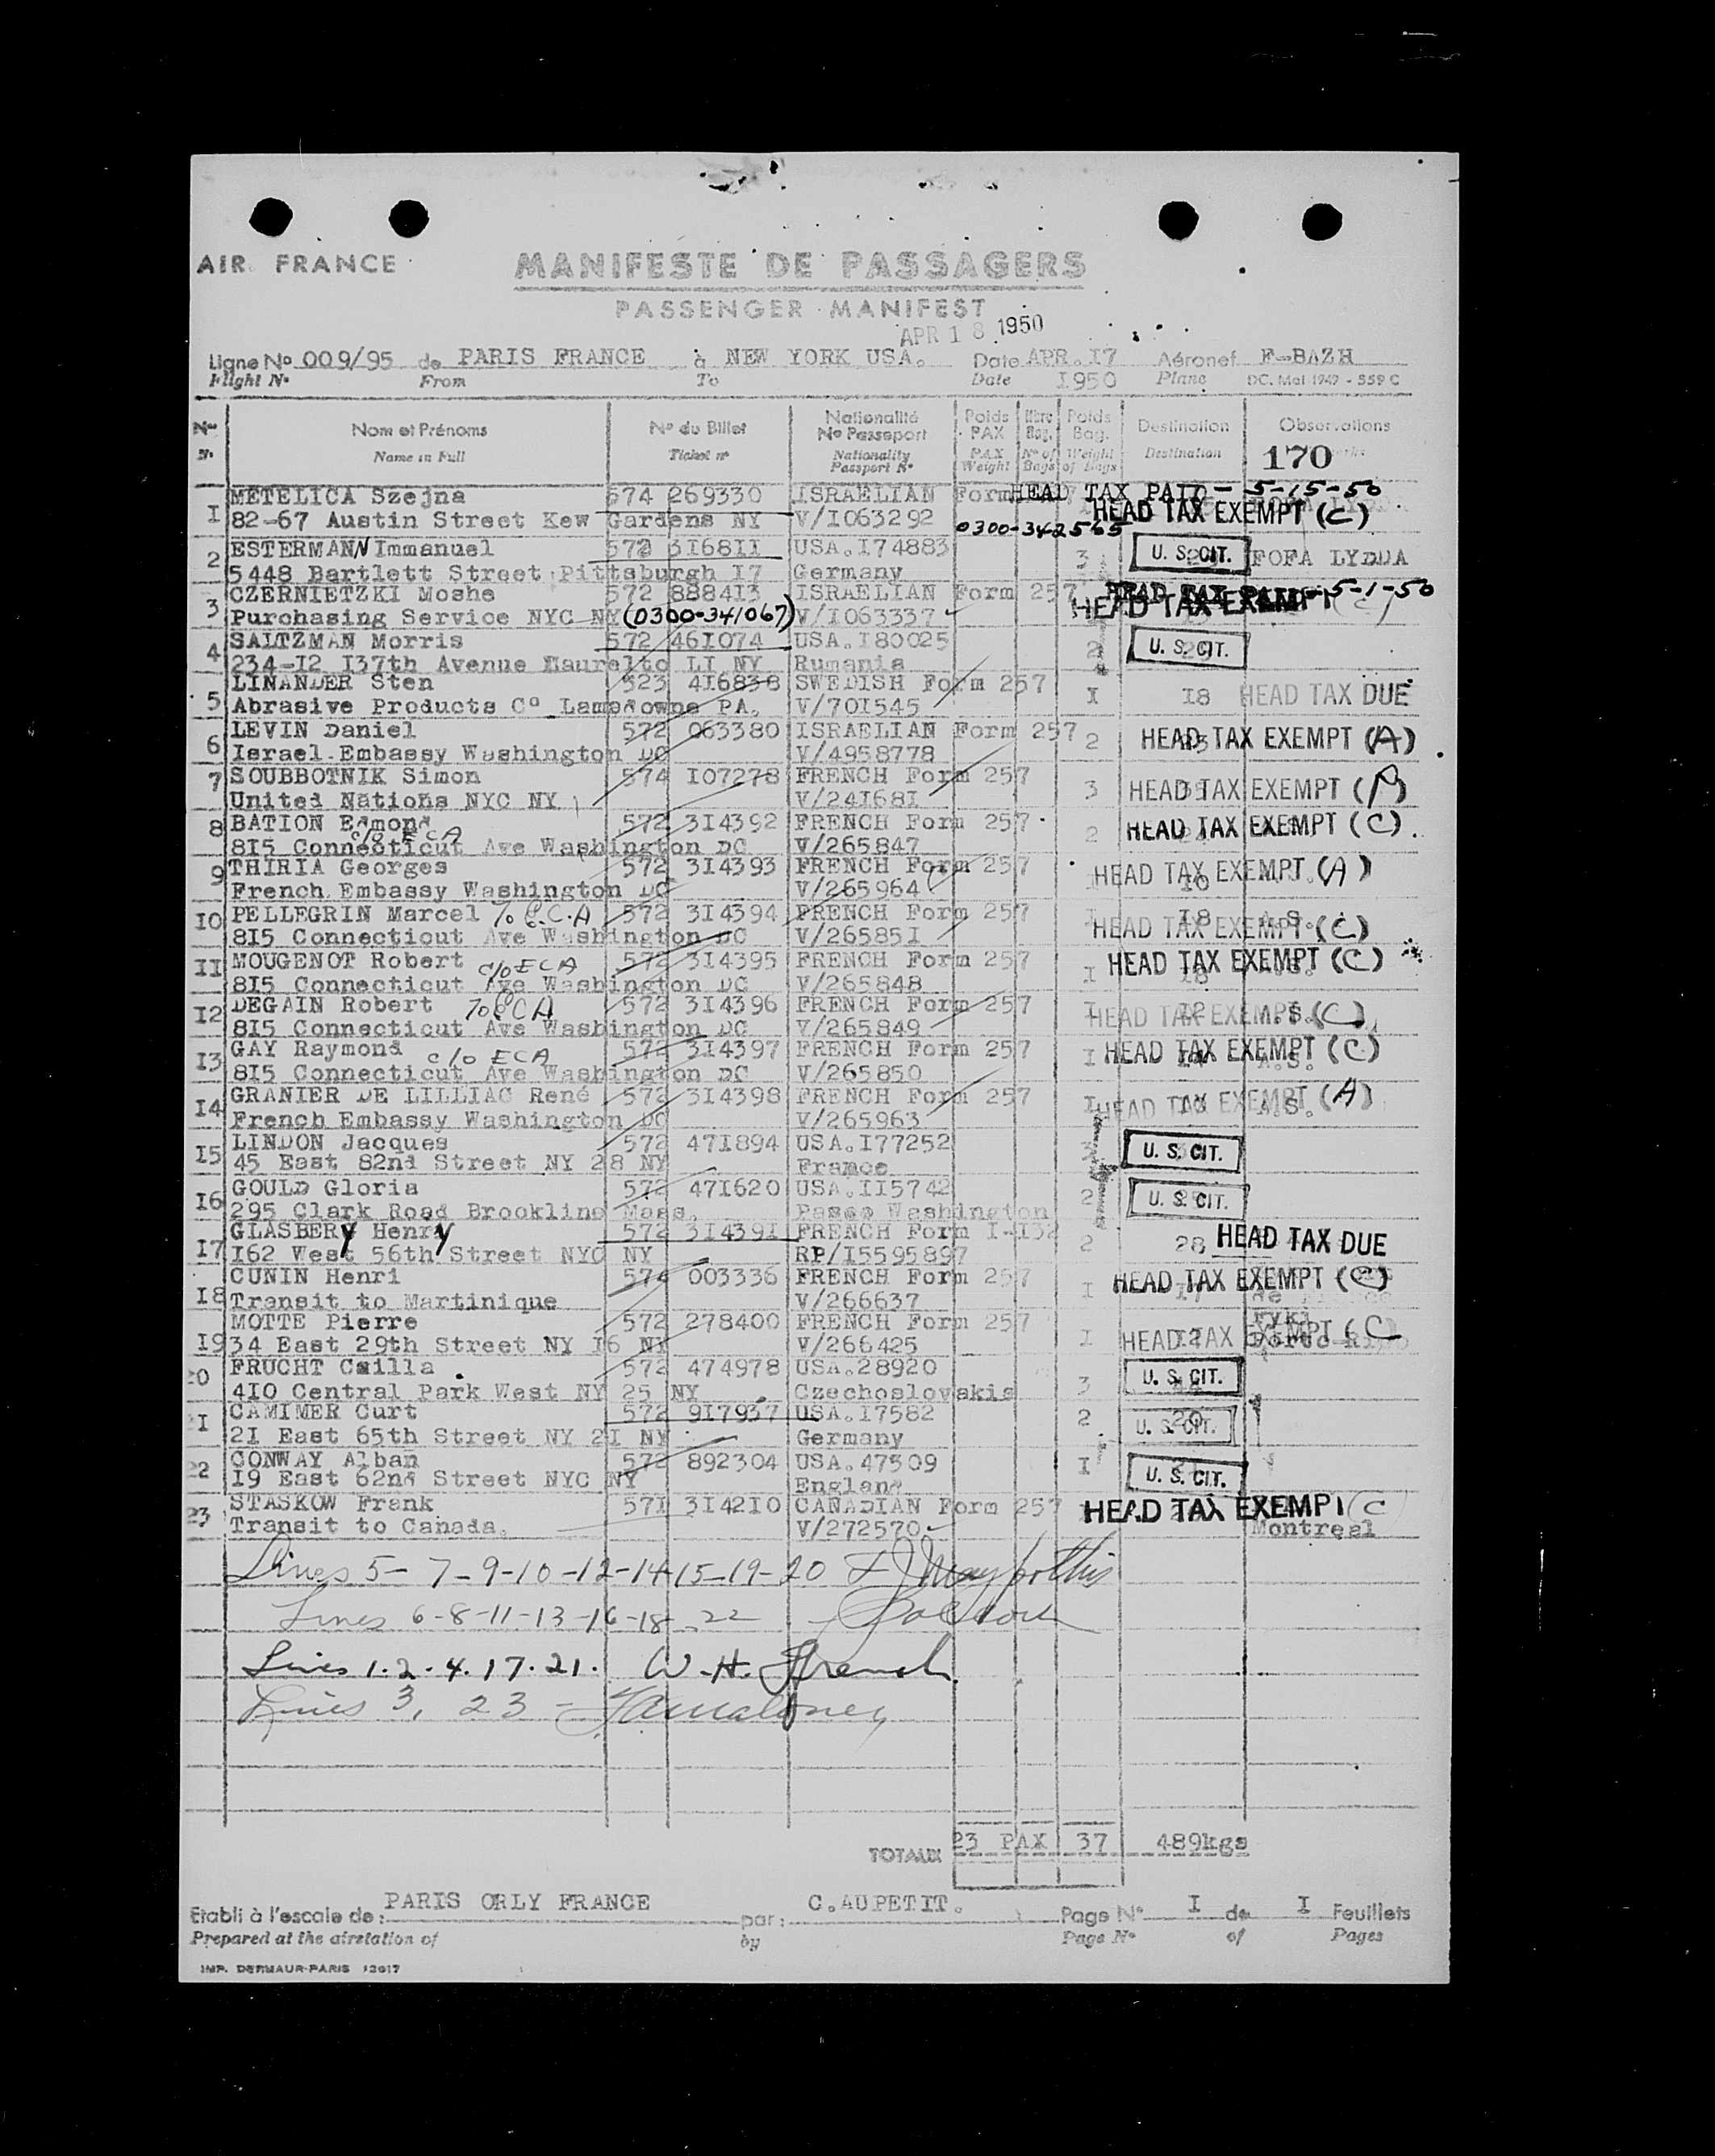 AIR FRANCE
MANIFESTE DE PASSAGERS
PASSENGER MANIFEST
APR 18 1950
Ligne No 009/95 de PARIS FRANCE à NEW YORK USA. Date APR. I7 Aéronef F-BAZH
Flight No From To Date I950 Plane DC. Mal 1947 - 559 C
Nos Nom et Prénoms No du Billet Nationalité No Passeport Poids PAX Nbre Bag. Poids Bag. Destination Observations
N. Name in Full Ticket no Nationality Passport No PAX Weight No of Bags Weight of Bags Destination 170
I METELICA Szejna 574 269330 ISRAELIAN Form HEAD TAX PAID - 5-15-50
82-67 Austin Street Kew Gardens NY V/I063292 0300-342565 HEAD TAX EXEMPT (C)
2 ESTERMANN Immanuel 572 3I68II USA.I74883 3 U. S. CIT. FOFA LYDDA
5448 Bartlett Street Pittsburgh I7 Germany
3 CZERNIETZKI Moshe 572 888413 ISRAELIAN Form 257 HEAD TAX PAID - 5-1-50
Purchasing Service NYC NY (0300-341067) V/I063337 HEAD TAX EXEMPT (C)
4 SALTZMAN Morris 572 46I074 USA.I80025 2 U. S. CIT.
234-I2 I37th Avenue Laurelto LI NY Rumania
5 LINANDER Sten 523 4I6838 SWEDISH Form 257 I I8 HEAD TAX DUE
Abrasive Products Co Lamsdowne PA. V/70I545
6 LEVIN Daniel 572 063380 ISRAELIAN Form 257 2 HEAD TAX EXEMPT (A)
Israel Embassy Washington DC V/4958778
7 SOUBBOTNIK Simon 574 I07278 FRENCH Form 257 3 HEAD TAX EXEMPT (A)
United Nations NYC NY V/24I68I
8 BATION Edmond 572 3I4392 FRENCH Form 257 2 HEAD TAX EXEMPT (C)
c/o ECA
8I5 Connecticut Ave Washington DC V/265847
9 THIRIA Georges 572 3I4393 FRENCH Form 257 HEAD TAX EXEMPT (A)
French Embassy Washington DC V/265964
I0 PELLEGRIN Marcel % E.C.A 572 3I4394 FRENCH Form 257 I I8 A.S. HEAD TAX EXEMPT (C)
8I5 Connecticut Ave Washington DC V/26585I
II MOUGENOT Robert c/o ECA 572 3I4395 FRENCH Form 257 I I8 HEAD TAX EXEMPT (C)
8I5 Connecticut Ave Washington DC V/265848
I2 DEGAIN Robert % ECA 572 3I4396 FRENCH Form 257 I I2 HEAD TAX EXEMPT (C)
8I5 Connecticut Ave Washington DC V/265849
I3 GAY Raymond c/o ECA 572 3I4397 FRENCH Form 257 I HEAD TAX EXEMPT (C)
8I5 Connecticut Ave Washington DC V/265850 A.S.
I4 GRANIER DE LILLIAC René 572 3I4398 FRENCH Form 257 I HEAD TAX EXEMPT (A)
French Embassy Washington DC V/265963 A.S.
I5 LINDON Jacques 572 47I894 USA.I77252 3 U. S. CIT.
45 East 82nd Street NY 28 NY France
I6 GOULD Gloria 572 47I620 USA.II5742 2 U. S. CIT.
295 Clark Road Brookline Mass. Passp Washington
I7 GLASBERY Henry 572 3I439I FRENCH Form I-I32 2 28 HEAD TAX DUE
I62 West 56th Street NYC NY RP/I5595897
I8 CUNIN Henri 574 003336 FRENCH Form 257 I HEAD TAX EXEMPT (C)
Transit to Martinique V/266637
I9 MOTTE Pierre 572 278400 FRENCH Form 257 I HEAD TAX EXEMPT (C
34 East 29th Street NY I6 NY V/266425
20 FRUCHT Csilla 572 474978 USA.28920 3 U. S. CIT.
4I0 Central Park West NY 25 NY Czechoslovakia
2I CAMIMER Curt 572 9I7937 USA.I7582 2 U. S. CIT.
2I East 65th Street NY 2I NY Germany
22 CONWAY Alban 572 892304 USA.47509 I U. S. CIT.
I9 East 62nd Street NYC NY England
23 STASKOW Frank 57I 3I42I0 CANADIAN Form 257 HEAD TAX EXEMPT (C
Transit to Canada. V/272570 Montreal
Lines 5-7-9-10-12-14-15-19-20
Lines 6-8-11-13-16-18-22
Lines 1.2.4.17.21. W.H. French
Lines 3, 23 - Maloney
TOTAUX 23 PAX 37 489kgs
Etabli à l'escale de: PARIS ORLY FRANCE par: C.AUPETIT. Page No I de I Feuillets
Prepared at the airstation of by Page No of Pages
IMP. DERMAUR-PARIS 13917